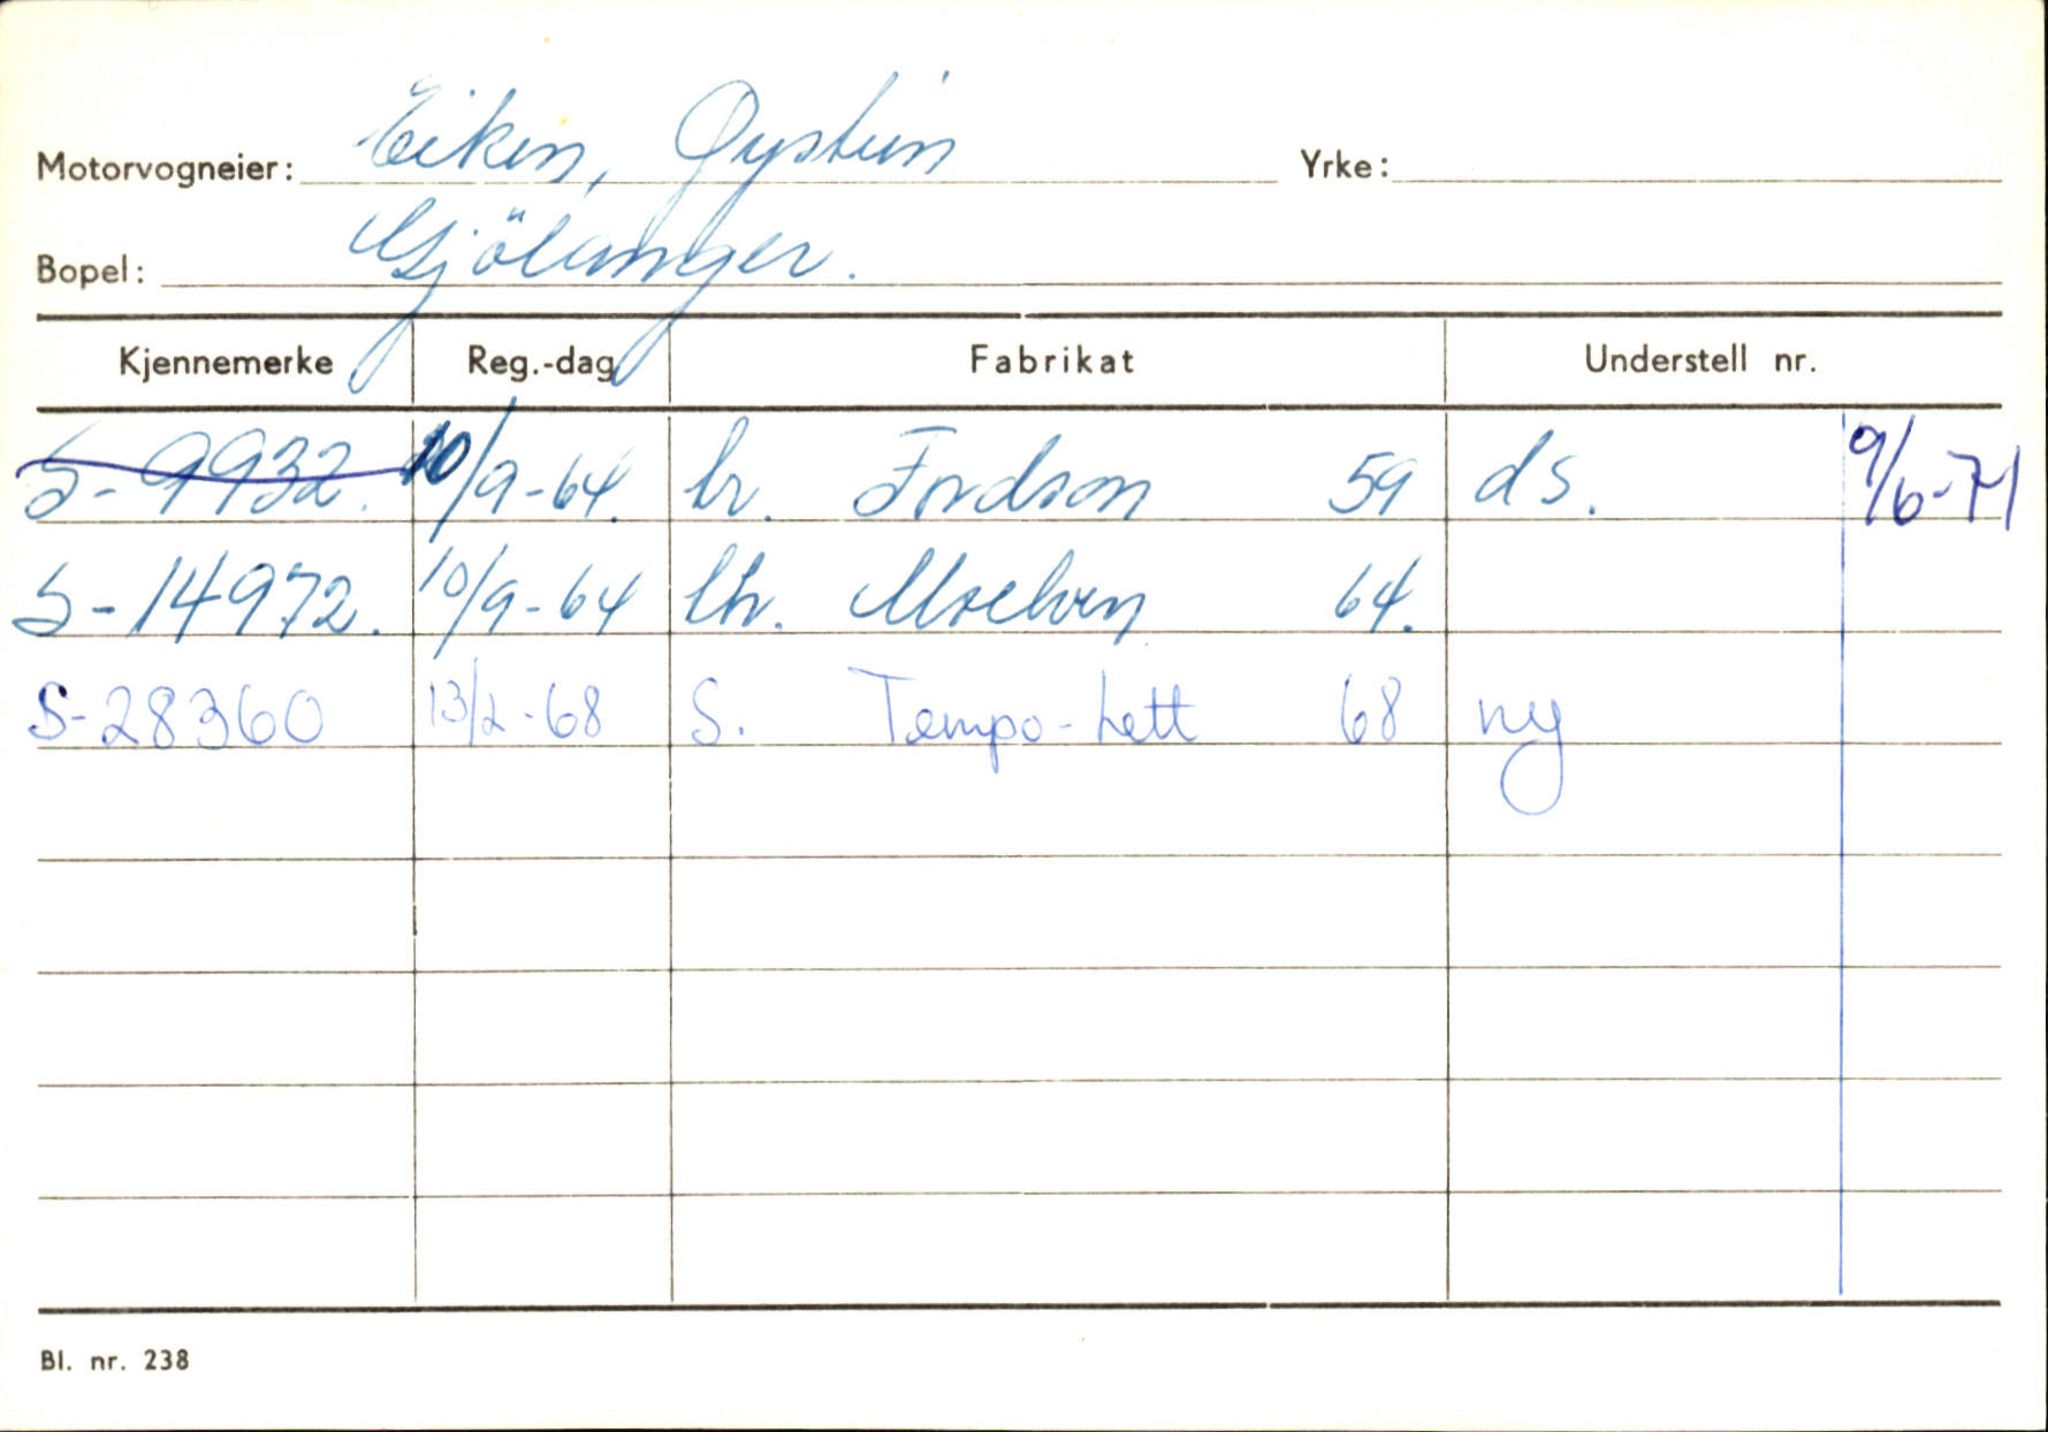 Motorvogneier: Eiken, Øystein Yrke:
Bopel: Gjölanger.
Kjennemerke Reg.-dag Fabrikat Understell nr.
S-9932. 10/9-64. tr. Fordson 59 ds. 9/6-71
S-14972. 10/9-64 lth. Moelven 64.
S-28360 13/2-68 S. Tempo-Lett 68 ny
Bl. nr. 238